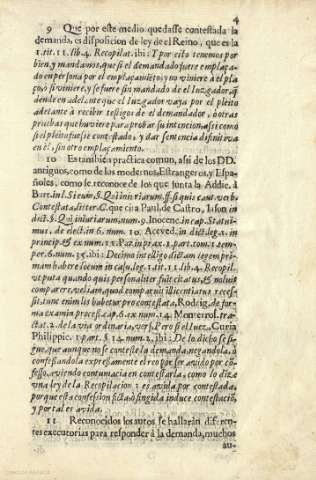 4
9 Que por este medio quedasse contestada la
demanda, es disposicion de ley de el Reino, que es la
1. tit. 11. lib. 4. Recopilat. ibi: Y por esto tenemos por
bien, y mandamos, que si el demandado fuere emplaça-
do en persona por el emplaçamiẽto, y no viniere à el pla-
ço, ò si viniere, y se fuere sin mandado de el Iuzgador, q̃
dende en adelante que el Iuzgador vaya por el pleito
adelante à recibir testigos de el demandador, ò otras
pruebas que huviere para probar su intencion, assi como
si el pleito fuesse contestado, y dar sentencia difinitiva
en èl, sin otro emplaçamiento.
10 Es tambiẽ practica comun, assi de los DD.
antiguos, como de los modernos, Estrangeros, y Espa-
ñoles, como se reconoce de los que junta la Addic. à
Bart. in l. Si eum, §. Qui iniuriarum, ff. si quis caut. verb.
Contestata, litter. C. que cita à Paul. de Castro, Iason in
dict. §. Qui iniuriarum, num. 9. Inocenc. in cap. Statui-
mus, de elect. in 6. num. 10. Aceved. in dict. leg. 1. in
princip. & ex num. 12. Paz in prax. 1. part. tom. 1. tem-
por. 6. num. 35. ibi: Decimo intelligo dictam legem pri-
mam habere locum in casu, leg. 1. tit. 11. lib. 4. Recopil.
ut puta quando quis personaliter fuit citatus, & noluit
comparere, vel iam, quod comparuit illicentiatus reces-
sit, tunc enim lis habetur pro contestata, Rodrig. de for-
ma examin. process. cap. 6. ex num. 14. Monterrol. tra-
ctat. 2. de la via ordinaria, vers. Pero si el Iuez, Curia
Philippic. 1. part. §. 14. num. 2. ibi: De lo dicho se si-
gue, que aunque no se conteste la demanda, negandola, ò
confessandola expressamente el reo por ser avido por cõ-
fesso, aviendo contumacia en contestarla, como lo dize
una ley de la Recopilacion: es avida por contestada,
porque esta confession ficta, ò fingida induce contestaciõ,
y por tal es avida.
11 Reconocidos los autos se hallaràn diferen-
tes executorias para responder à la demanda, muchos
au-